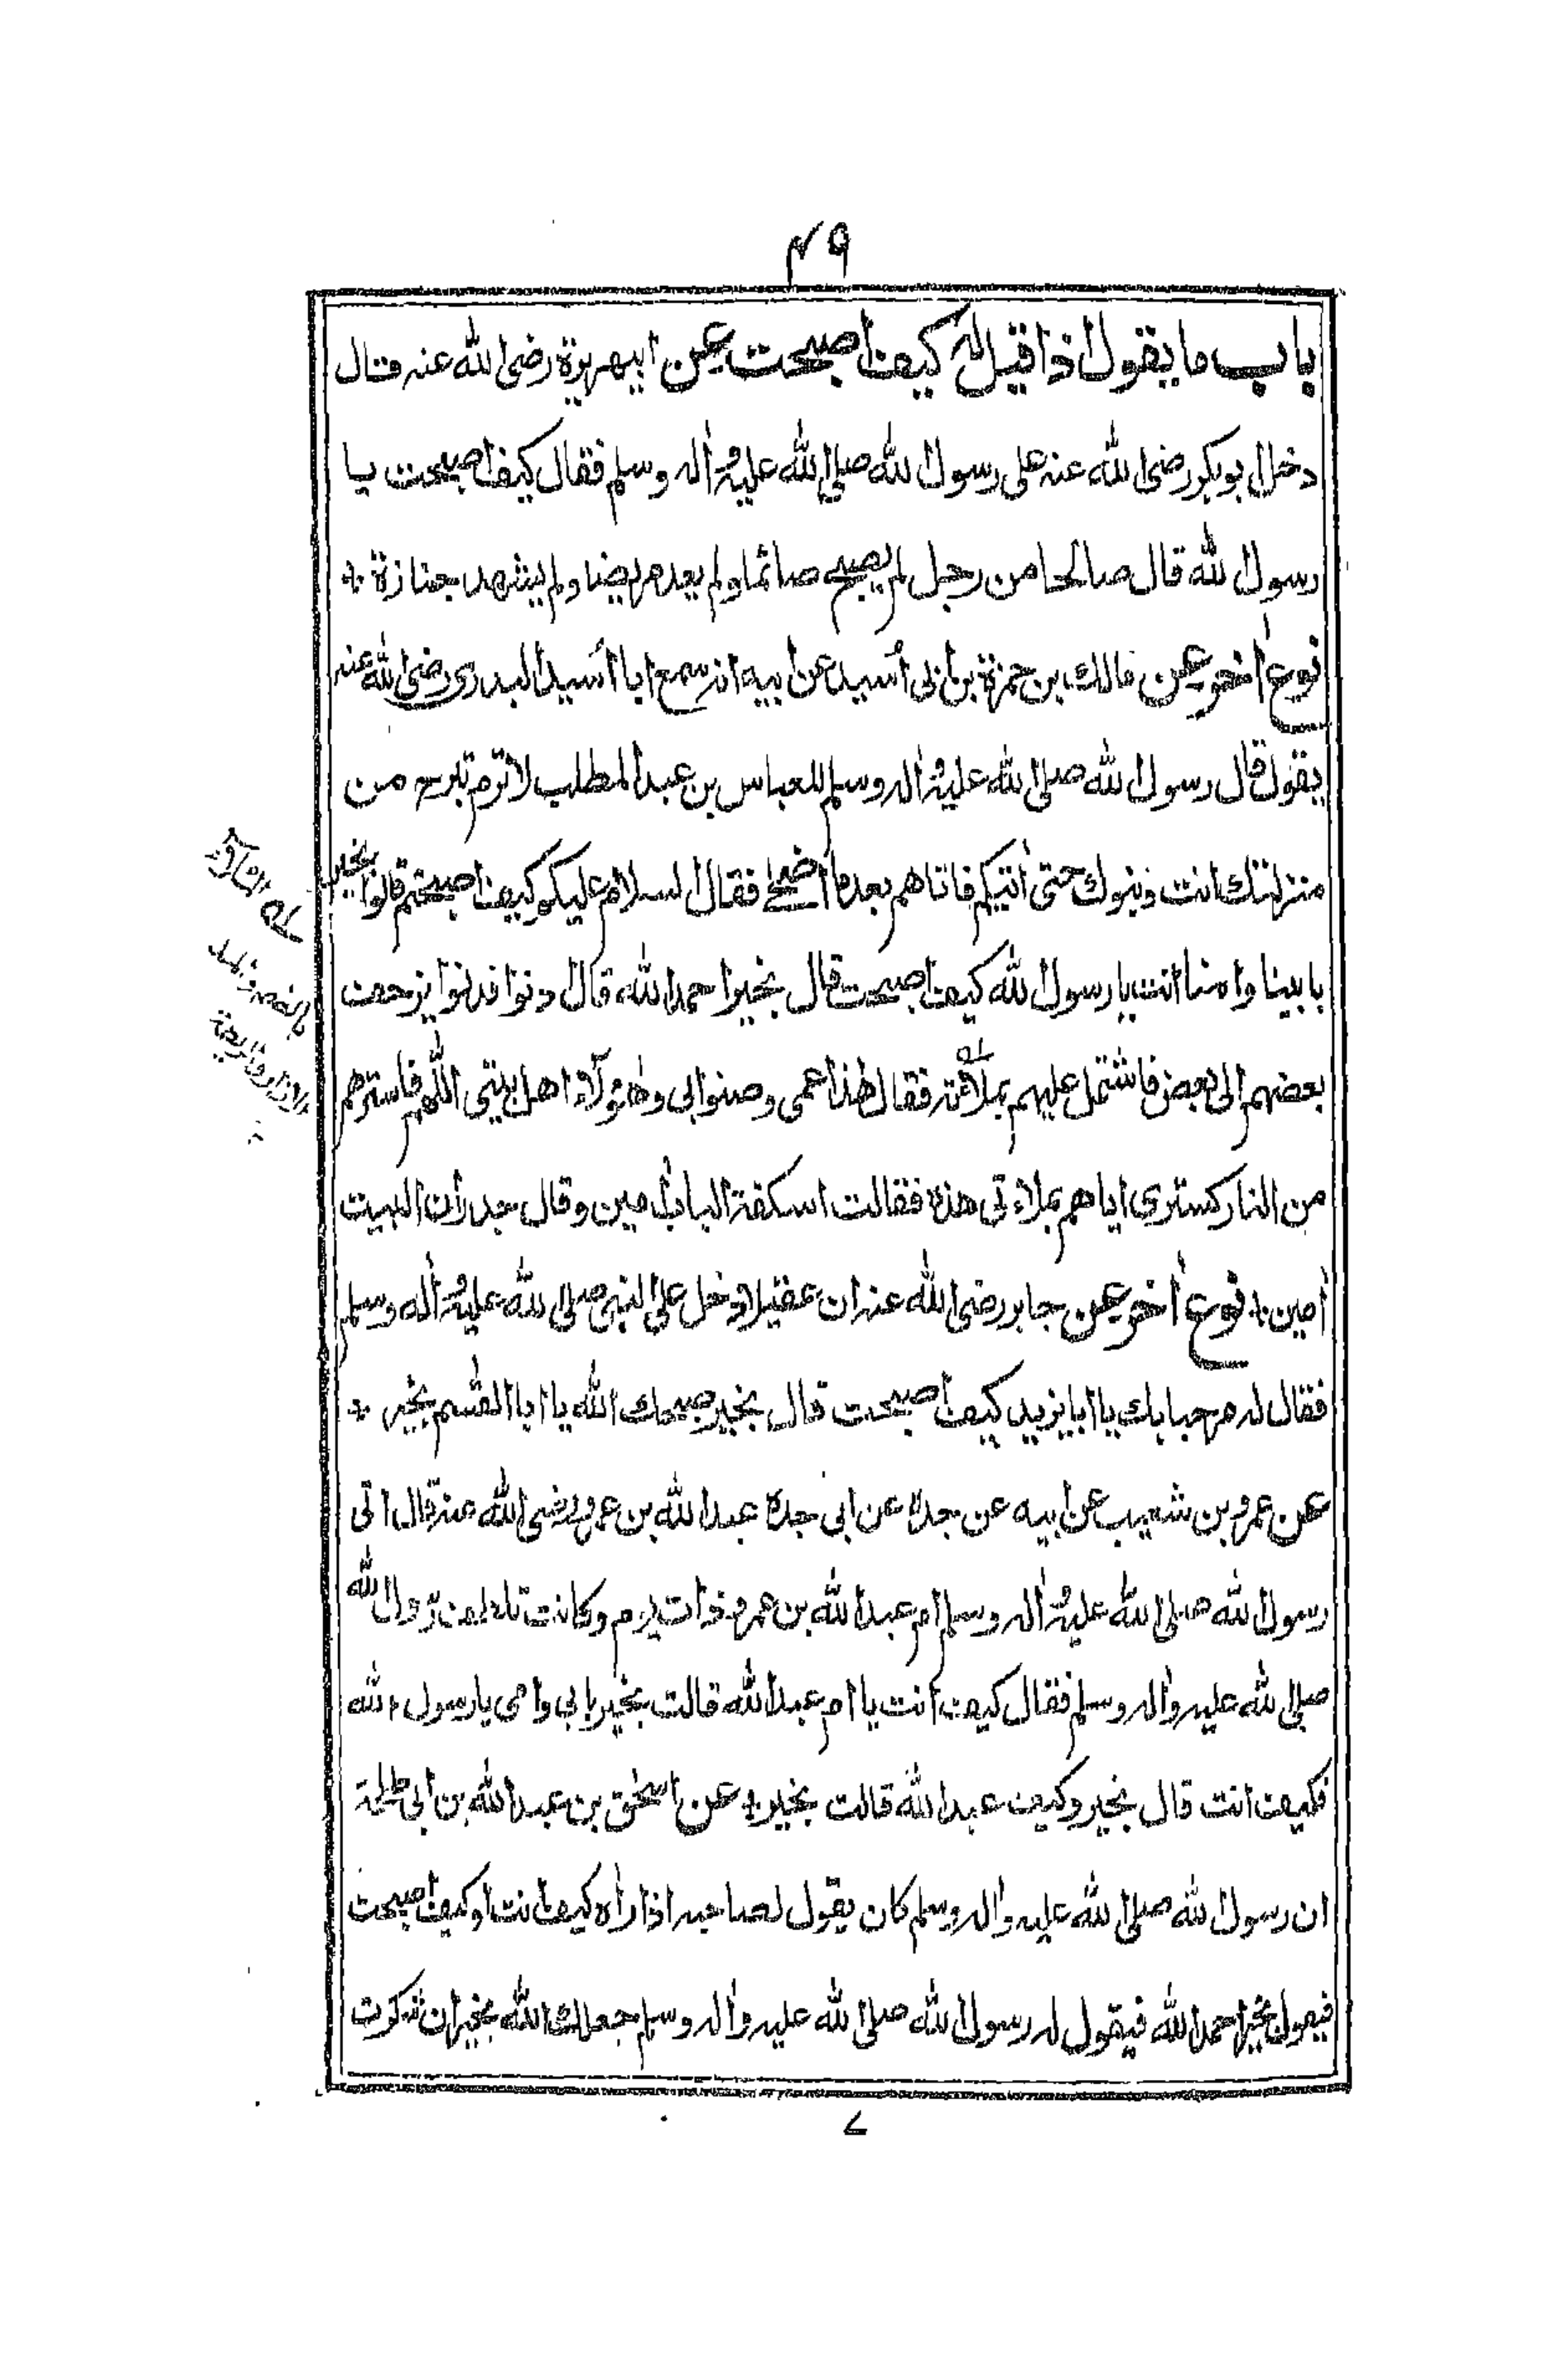 ٤٩
باب ما يقول اذا قيل له كيف اصبحت عن ابيهريرة رضى الله عنه قال
دخل ابوبكر رضى الله عنه على رسول الله صلى الله عليه واٰله وسلم فقال كيف اصبحت يا
رسول الله قال صالحا من رجل لم يصبح صائما ولم يعد مريضا ولم يشهد جنازة ؞
نوع اٰخر عن مالك بن حمزة بن ابى أسيد عن ابيه انه سمع ابا أسيد البدرى رضى الله عنه
يقول قال رسول الله صلى الله عليه واٰله وسلم للعباس بن عبد المطلب لا ترم تبرح من
منزلتك انت وبنوك حتى اٰتيكم فاتاهم بعد ما اضحى فقال السلام عليكم كيف اصبحتم قالوا بخير
بابينا وامنا انت يا رسول الله كيف اصبحت قال بخير احمد الله قال دنوا فدنوا يزحف
بعضهم الى بعض فاشتمل عليهم بملاءته فقال هٰذا عمى وصنو ابى وهٰؤلاء اهل بيتى اللّٰهم فاسترهم
من النار كسترى اياهم بملاءتى هذه فقالت اسكفة الباب اٰمين وقال جدران البيت
اٰمين ؞ نوع اٰخر عن جابر رضى الله عنه ان عقيلا دخل على النبى صلى الله عليه واٰله وسلم
فقال له مرحبا بك يا ابا يزيد كيف اصبحت قال بخير صبحك الله يا ابا القٰسم بخير ؞
عن عمرو بن شعيب عن ابيه عن جده عن ابى جده عبد الله بن عمرو رضى الله عنه قال اتى
رسول الله صلى الله عليه واٰله وسلم ام عبد الله بن عمرو ذات يوم وكانت تلطف رسول الله
صلى الله عليه واٰله وسلم فقال كيف انت يا ام عبد الله قالت بخير بابى وامى يا رسول الله
فكيف انت قال بخير وكيف عبد الله قالت بخير ؞ عن اسحٰق بن عبد الله بن ابى طلحة
ان رسول الله صلى الله عليه واٰله وسلم كان يقول لصاحبه اذا راٰه كيف انت او كيف اصبحت
فيقول بخير احمد الله فيقول له رسول الله صلى الله عليه واٰله وسلم جعلك الله بخير ان شكرت
بالضم والمد
الازار والريطة